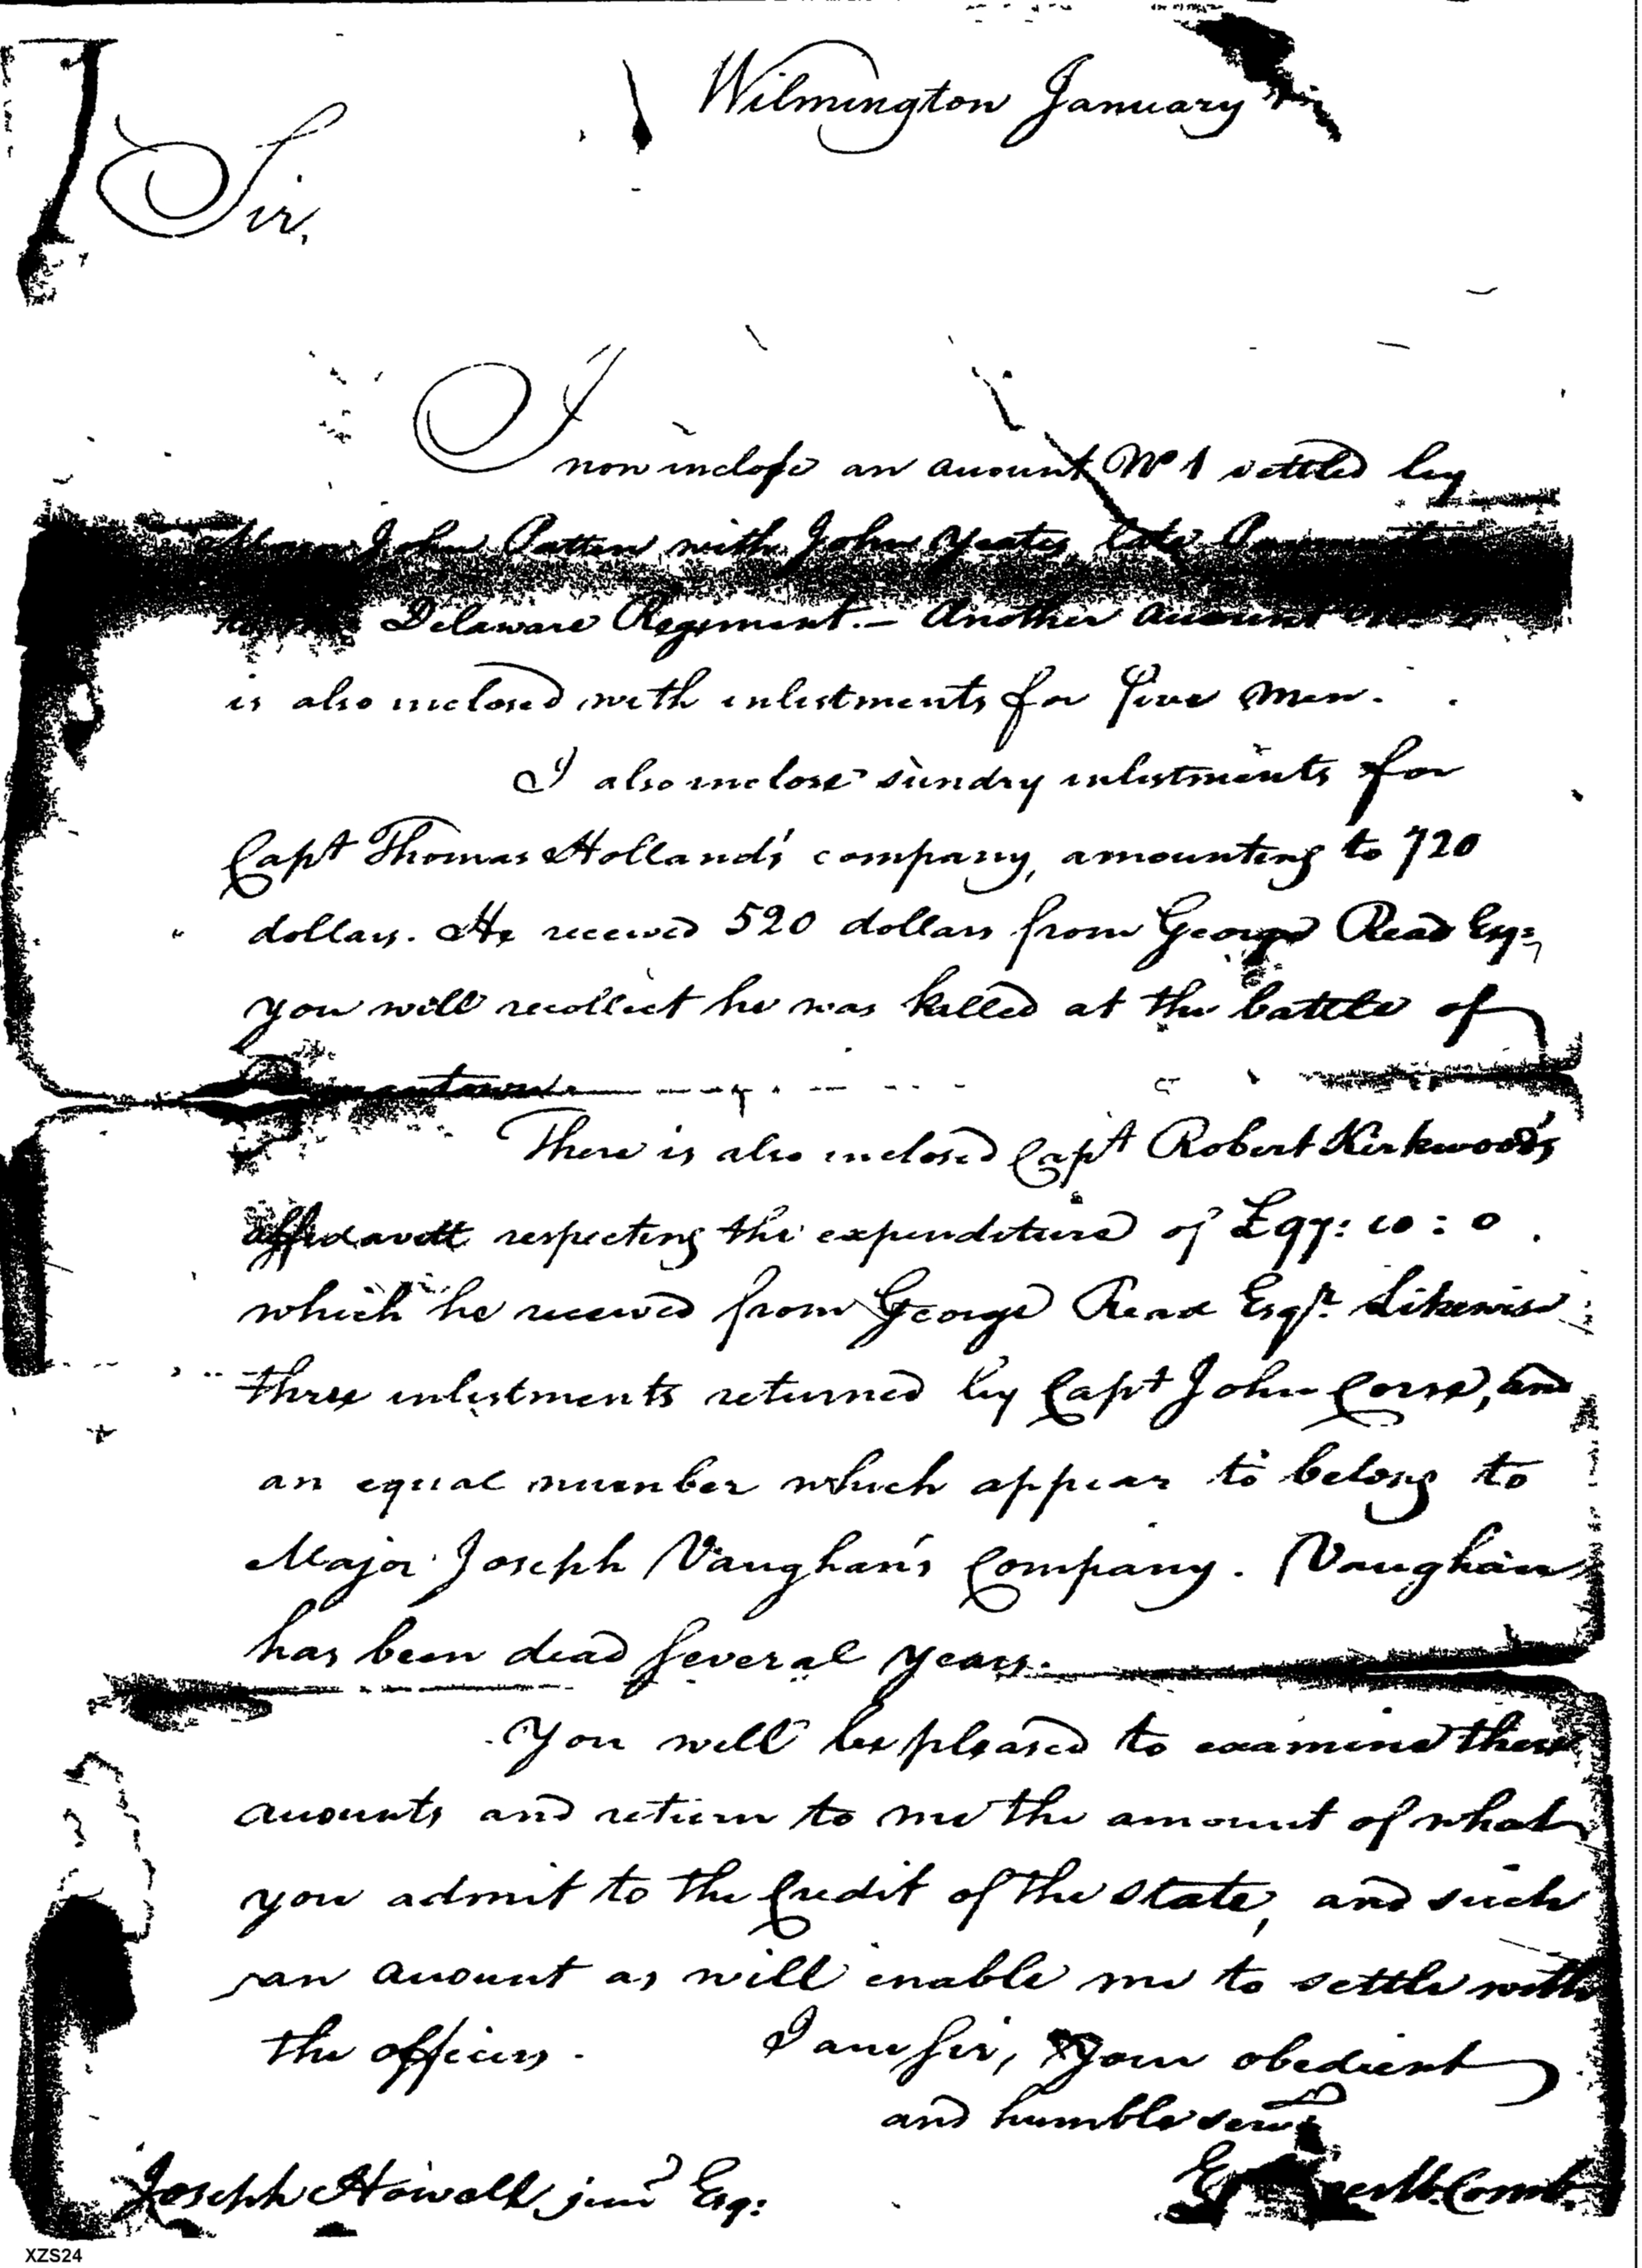 Wilmington January
Sir,
I
now inclose an account No 1 settled by
John Patten with John Yeates, late
Delaware Regiment. — Another account
is also inclosed with inlistments for five men.
I also inclose sundry inlistments for
Capt Thomas Holland's company, amounting to 720
dollars. He received 520 dollars from George Read Esq:,
you will recollect he was killed at the battle of
There is also inclosed Capt Robert Kirkwood's
affidavitt respecting the expenditure of £97: 10: 0.
which he received from George Read Esqr. Likewise
three inlistments returned by Capt John Corse, and
an equal number which appear to belong to
Major Joseph Vaughan's Company. Vaughan
has been dead several years.
You will be pleased to examine these
accounts and return to me the amount of what
you admit to the Credit of the State, and such
an account as will enable me to settle with
the officers.
I am sir, your obedient
and humble servt
Joseph Howell junr Esq:
Comb.
XZS24